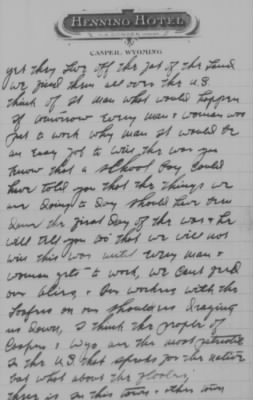 HENNING HOTEL
CASPER, WYOMING
yet they live off the fat of the land
we find them all over the U.S.
think of it man what would happen
if tomorrow every man & woman was
put to work why man it would be
an easy job to win the war you
know that a school boy could
have told you that the things we
are doing to day should have been
done the first day of the war & he
will tell you too that we will not
win this war until every man &
woman gets to work, we can't feed
our allies, & our workers with the
loafers on our shoulders draging
us down, I think the people of
Casper & Wyo are the most patriotic
in the U.S. that speaks for the native
but what about the floater
there is in this town & other town